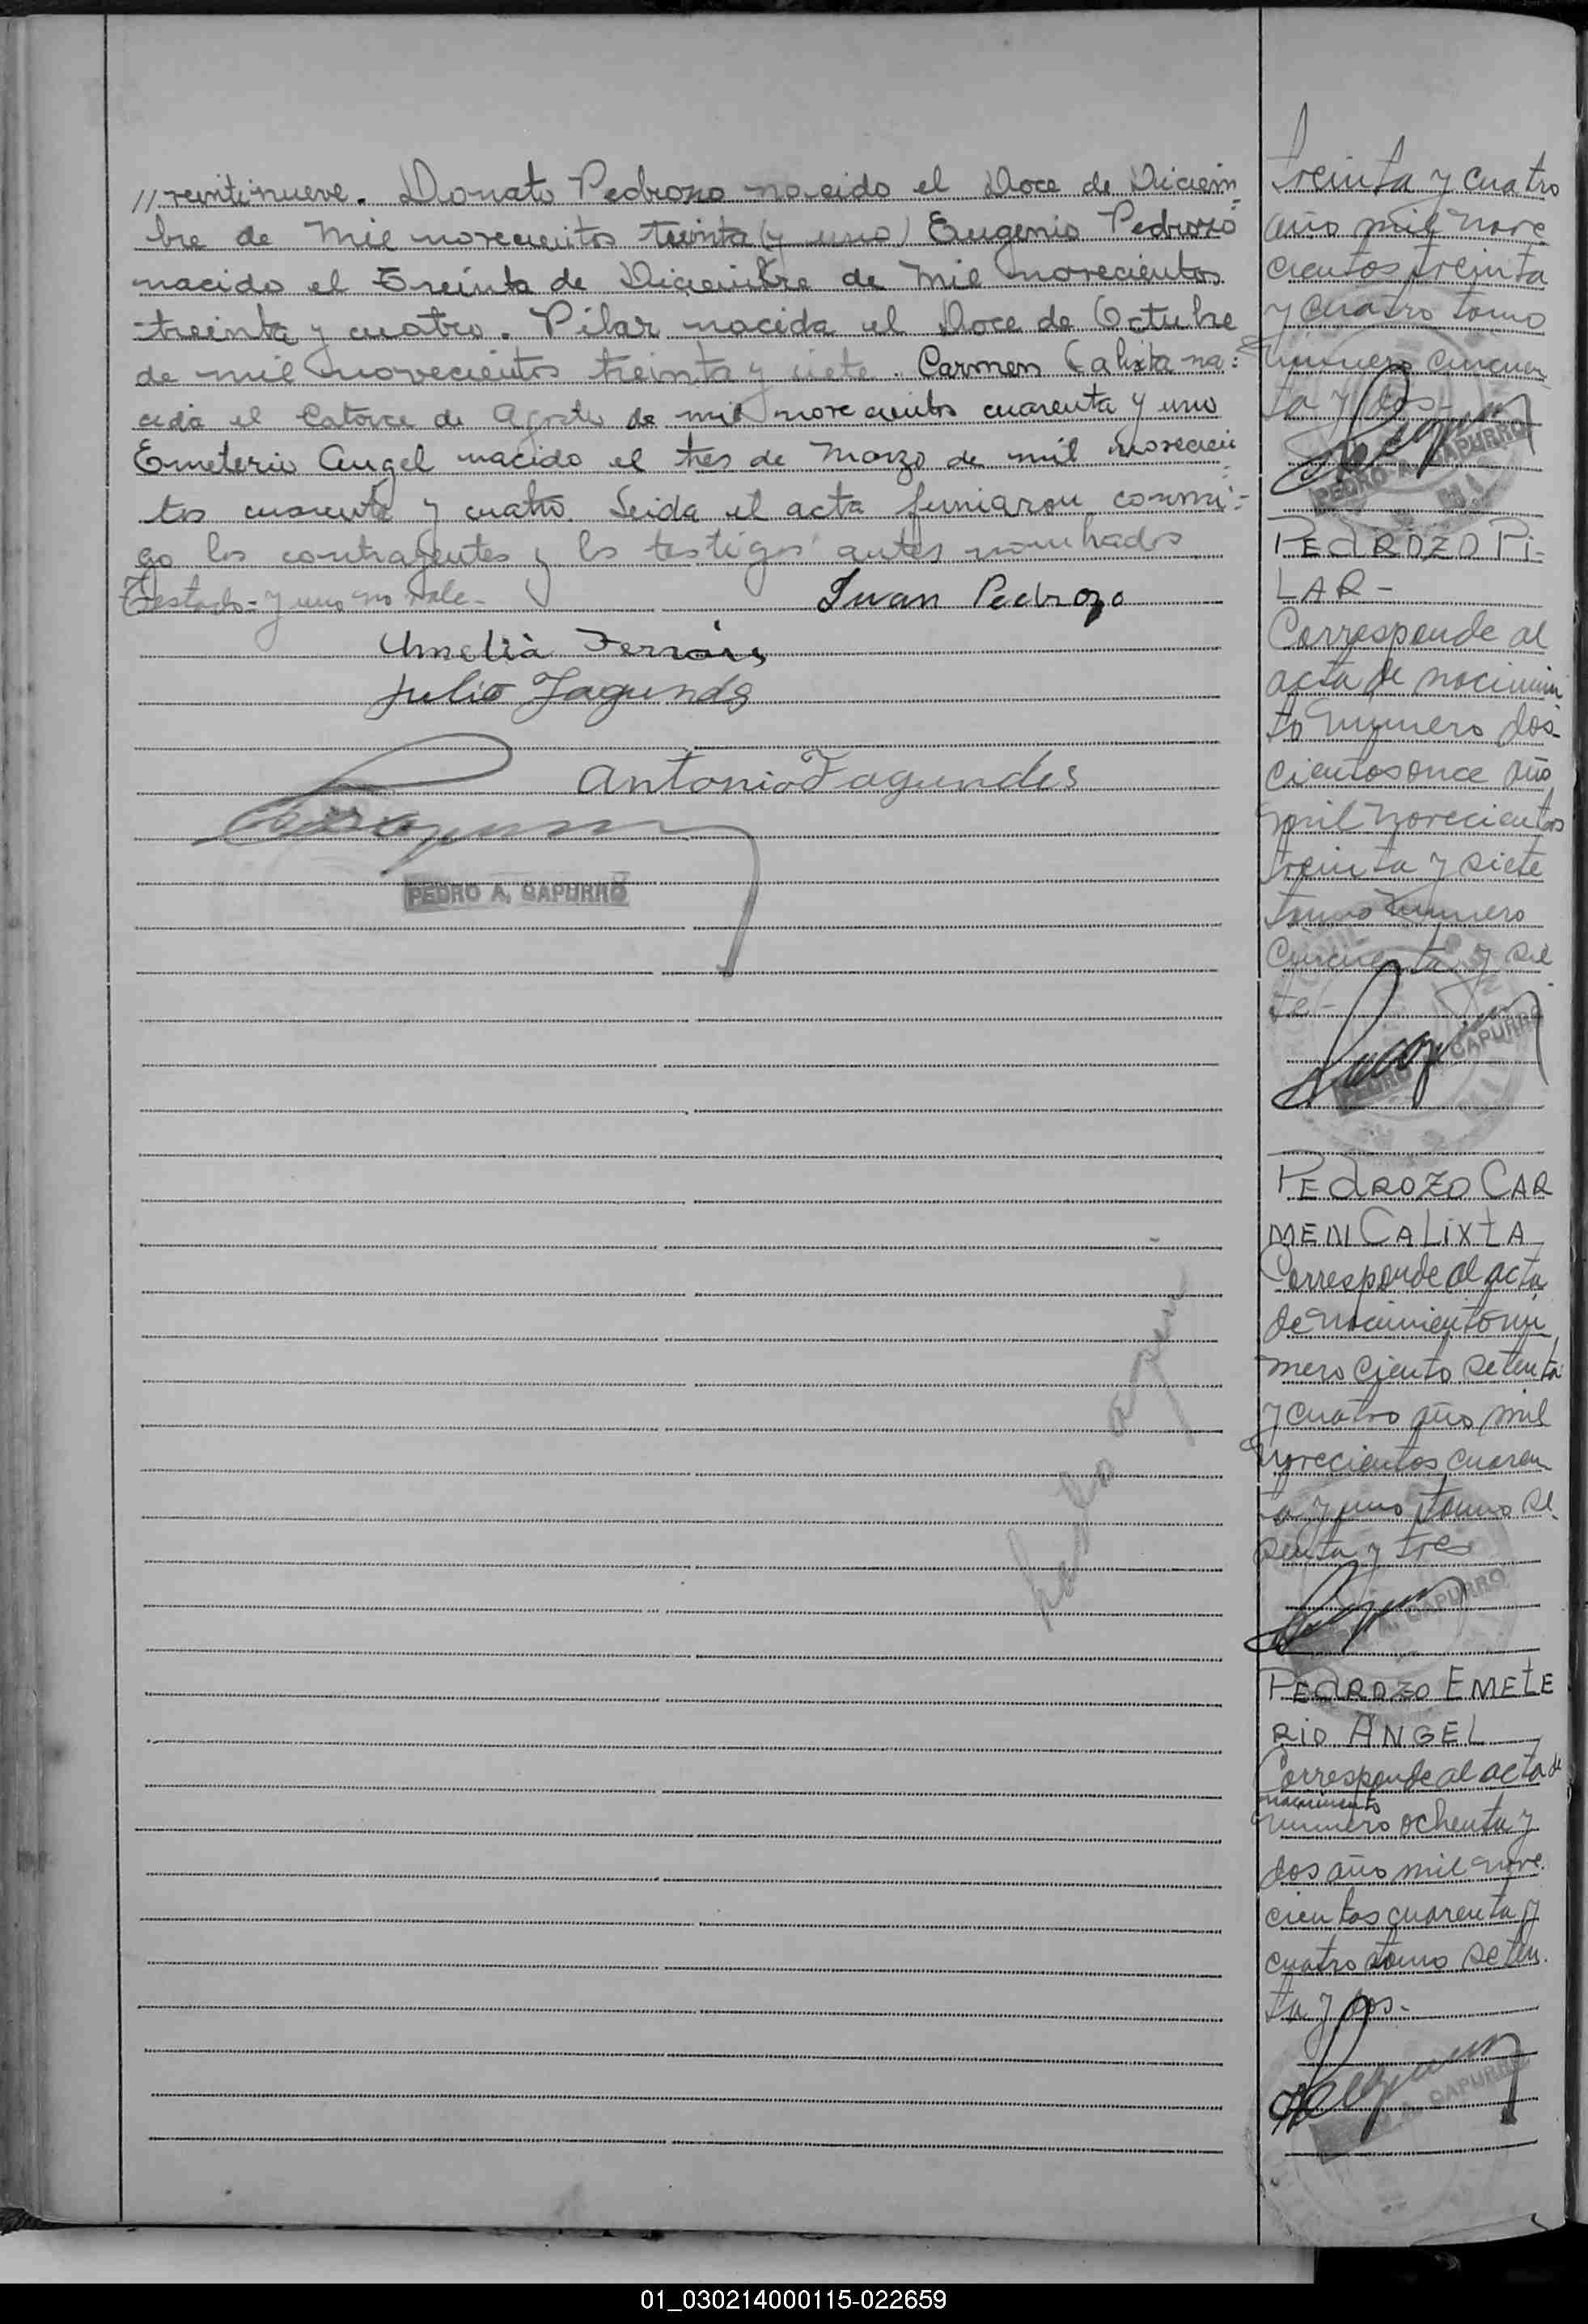 // veintinueve. Donato Pedrozo nacido el Doce de Diciem=
bre de Mil novecientos treinta (y uno) Eugenio Pedrozo
nacido el Treinta de Diciembre de Mil novecientos
treinta y cuatro. Pilar nacida el Doce de Octubre
de mil novecientos treinta y siete. Carmen Calixta na=
cida el Catorce de Agosto de mil novecientos cuarenta y uno
Emeterio Angel nacido el tres de Marzo de mil novecien=
tos cuarenta y cuatro. Leida el acta firmaron conmi=
go los contrayentes y los testigos antes nombrados
Testado = y uno no vale-
Juan Pedrozo
Amelia Ferrais
Julio Fagundes
Antonio Fagundes
PEDRO A. CAPURRO
treinta y cuatro
año mil nove
cientos treinta
y cuatro tomo
número cincuen
ta y dos-
PEDRO A. CAPURRO
PEdROZO Pi-
LAR-
Corresponde al
acta de nacimien
to número dos-
cientos once año
mil novecientos
treinta y siete
tomo número
cincuenta y sie
te-
PEDRO A. CAPURRO
PEdROZO CAR
MEN CALiXtA
Corresponde al acta
de nacimiento nú
mero ciento setenta
y cuatro año mil
novecientos cuaren
ta y uno tomo se
senta y tres
PEDRO A. CAPURRO
PEdROZO EMEtE
RiO ANGEL
Corresponde al acta de
nacimiento
número ochenta y
dos año mil nove.
cientos cuarenta y
cuatro tomo seten.
ta y dos.-
A. CAPURRO
01_030214000115-022659